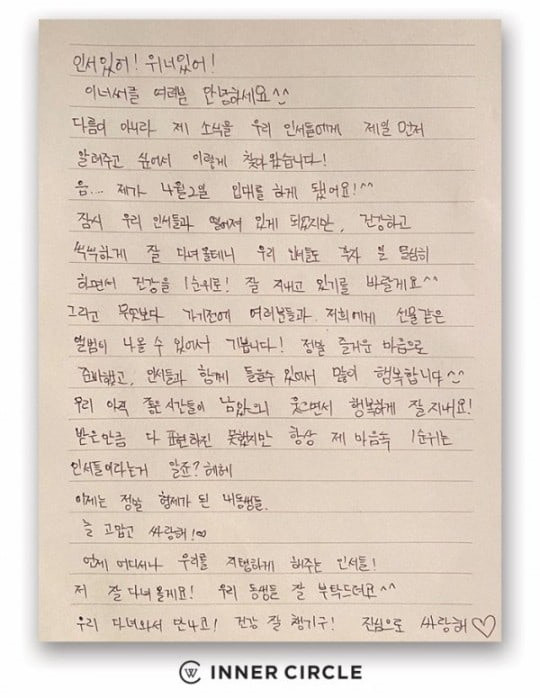 인서있어! 위너있어!
이너써클 여러분 안녕하세요^^
다름이 아니라 제 소식을 우리 인서들에게 제일 먼저
알려주고 싶어서 이렇게 찾아왔습니다!
음... 제가 4월2일 입대를 하게 됐어요!^^
잠시 우리 인서들과 떨어져 있게 되었지만, 건강하고
씩씩하게 잘 다녀올테니 우리 인서들도 투자 일 열심히
하면서 건강을 1순위로! 잘 지내고 있기를 바랄게요^^
그리고 무엇보다 가기전에 여러분들과 저희에게 선물같은
앨범이 나올 수 있어서 기쁩니다! 정말 즐거운 마음으로
준비했고, 인서들과 함께 들을수 있어서 많이 행복합니다^^
우리 아직 좋은시간들이 남았으니 웃으면서 행복하게 잘지내요!
받은만큼 다 표현하진 못했지만 항상 제 마음속 1순위는
인서들이라는거 알죠? 헤헤
이제는 정말 형제가 된 내동생들.
늘 고맙고 싸랑해!♡
언제 어디서나 우리를 지탱하게 해주는 인서들!
저 잘다녀올게요! 우리 동생들 잘 부탁드려요^^
우리 다녀와서 만나고! 건강 잘 챙기구! 진심으로 싸랑해♡
INNER CIRCLE